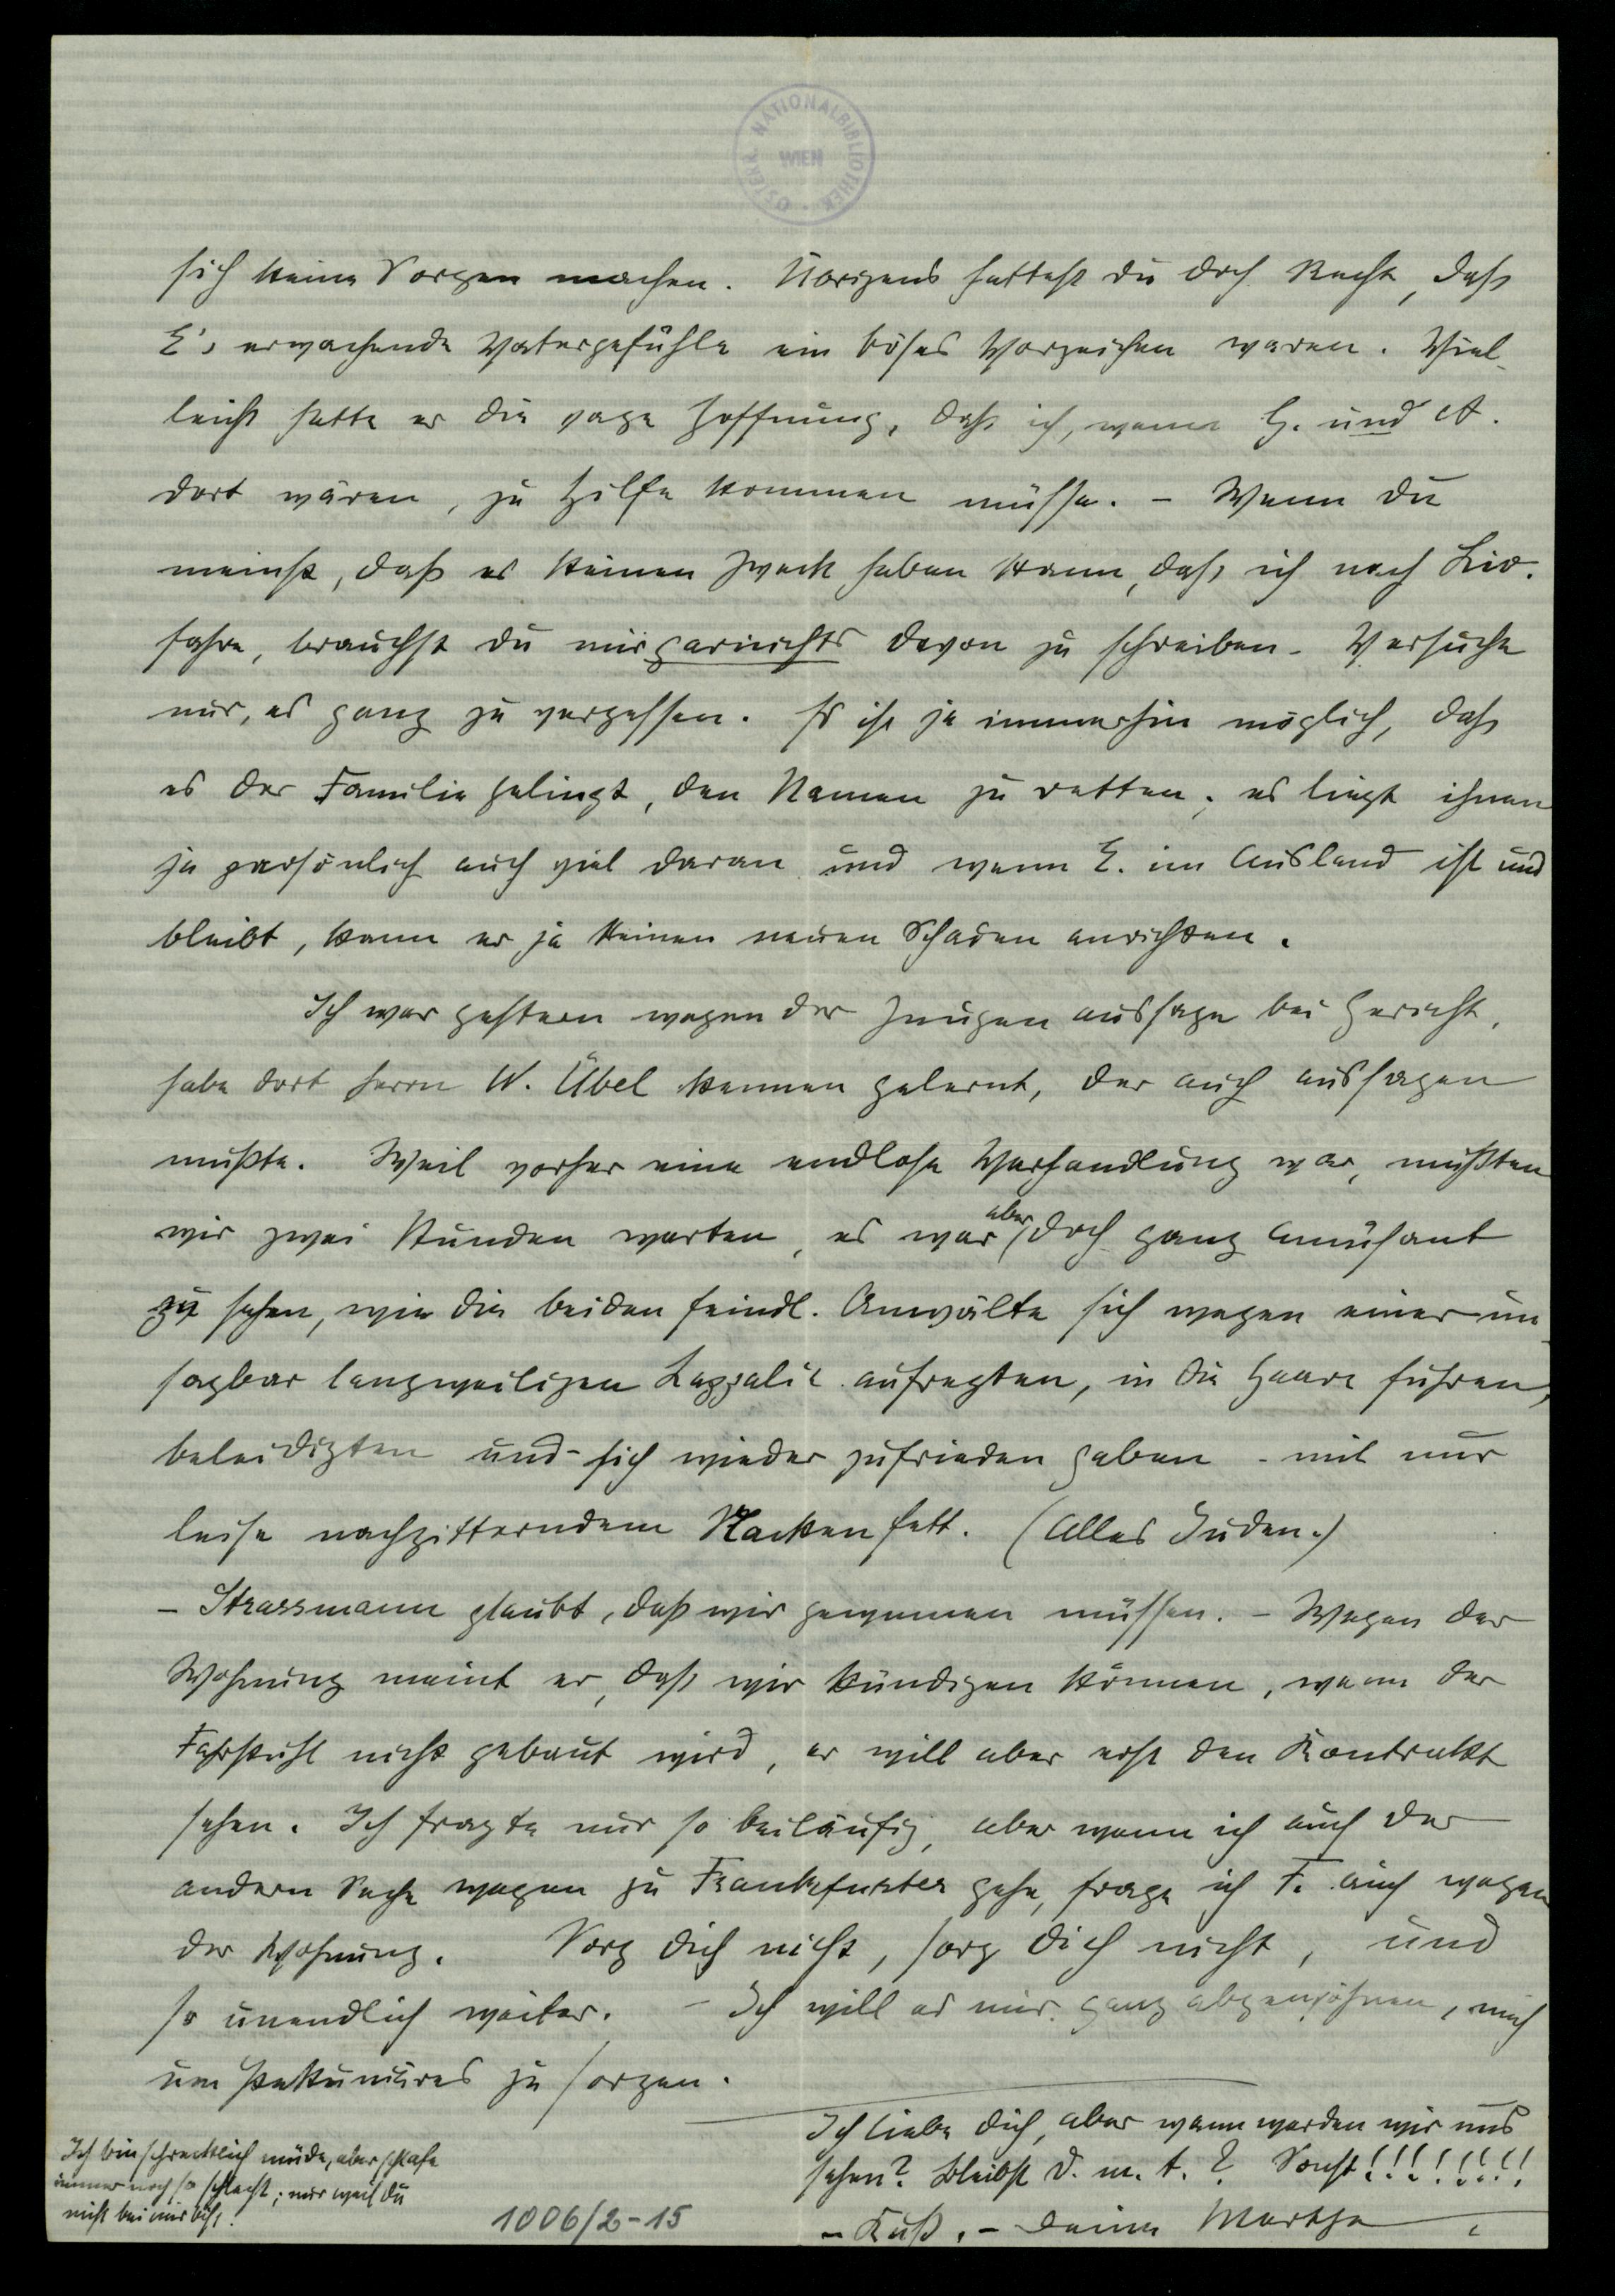 ÖSTERR. NATIONALBIBLIOTHEK · WIEN
sich keine Sorgen machen. Übrigens hattest du doch Recht, dass
E's erwachende Vatergefühle ein böses Vorzeichen waren. Viel-
leicht hatte er die vage Hoffnung, dass ich, wenn G. und A.
dort wären, zu Hilfe kommen müsse. – Wenn du
meinst, daß es keinen Zweck haben kann, dass ich nach Liv.
fahre, brauchst du mir garnichts davon zu schreiben. Versuche
nur, es ganz zu vergessen. Es ist ja immerhin möglich, dass
es der Familie gelingt, den Namen zu retten; es liegt ihnen
ja persönlich auch viel daran und wenn E. im Ausland ist und
bleibt, kann er ja keinen neuen Schaden anrichten.
Ich war gestern wegen der Zeugenaussage bei Gericht,
habe dort Herrn W. Übel kennen gelernt, der auch aussagen
mußte. Weil vorher eine endlose Verhandlung war, mußten
wir zwei Stunden warten, es war aber doch ganz amüsant
zu sehen, wie die beiden feindl. Anwälte sich wegen einer un-
sagbar langweiligen Lappalie aufregten, in die Haare fuhren,
beleidigten und sich wieder zufrieden gaben – mit nur
leise nachzitterndem Nackenfett. (Alles Juden.)
– Strassmann glaubt, daß wir gewinnen müssen. – Wegen der
Wohnung meint er, dass wir kündigen können, wenn der
Fahrstuhl nicht gebaut wird, er will aber erst den Kontrakt
sehen. Ich fragte nur so beiläufig, aber wenn ich auch der
andern Sache wegen zu Frankfurter gehe, frage ich F. auch wegen
der Wohnung. Sorg dich nicht, sorg dich nicht, und
so unendlich weiter. – Ich will es mir ganz abgewöhnen, mich
um Pekuniäres zu sorgen.
Ich liebe dich, aber wann werden wir uns
sehen? Bleibst d. m. t.? Sonst!!!!!!!!
– Kuß. – Deine Martha
Ich bin schrecklich müde, aber schlafe
immer noch so schlecht; nur weil du
nicht bei mir bist!
1006/2-15